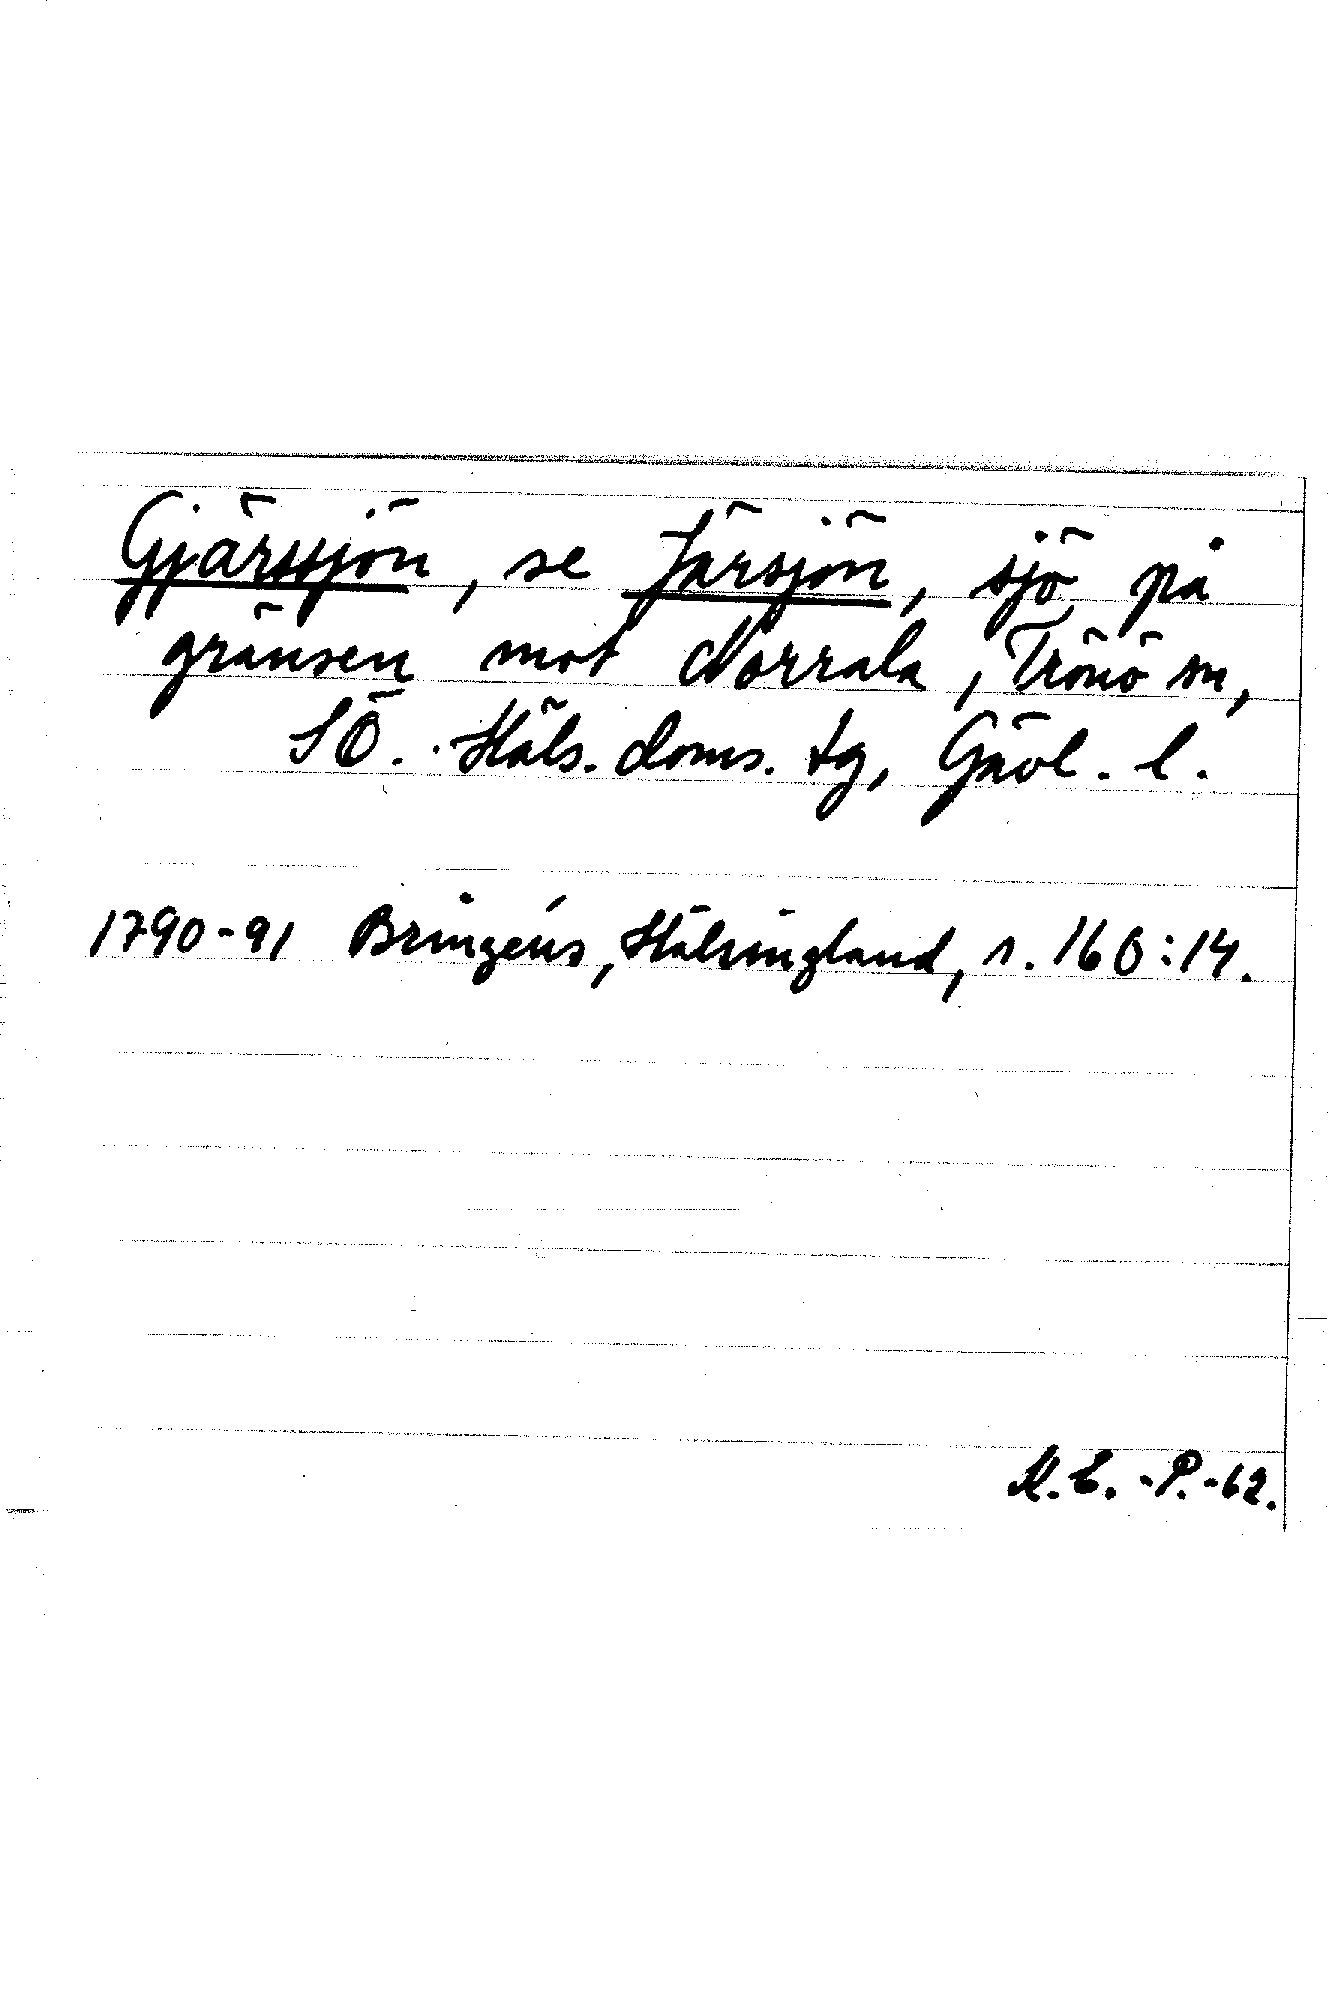 Gjärssjön, se Järsjön, sjö på
gränsen mot Norrala, Trönö sn,
SÖ. Häls. doms. tg, Gävl. l.
1790-91 Bringéus, Hälsingland, s. 160:14.
K.E.-P.-62.